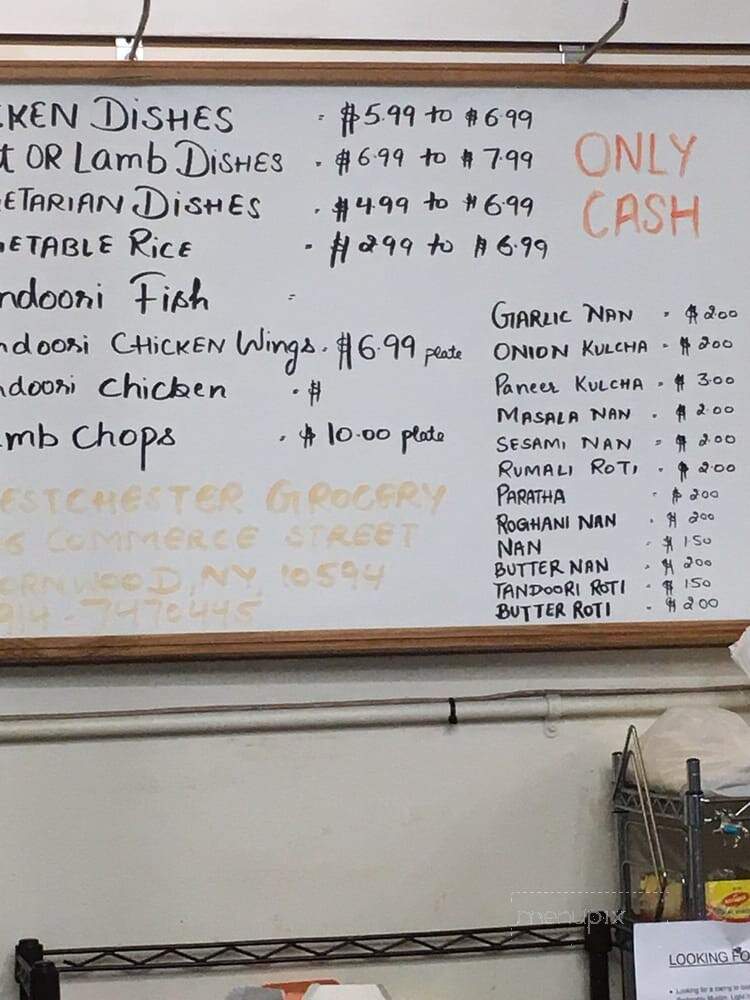 KEN DISHES = $5.99 to $6.99
t OR Lamb DISHES - $6.99 to $7.99
ETARIAN DISHES - $4.99 to $6.99
ETABLE RICE - $2.99 to $6.99
ndoori Fish =
ndoori CHICKEN Wings - $6.99 plate
ndoori Chicken - $
mb Chops - $10.00 plate
ESTCHESTER GROCERY
6 COMMERCE STREET
ORNWOOD, NY, 10594
914-7470445
ONLY
CASH
GARLIC NAN - $2.00
ONION KULCHA - $2.00
Paneer KULCHA - $3.00
MASALA NAN - $2.00
SESAMI NAN = $2.00
RUMALI ROTI - $2.00
PARATHA - $200
ROGHANI NAN - $200
NAN - $1.50
BUTTER NAN - $200
TANDOORI ROTI - $150
BUTTER ROTI - $200
menupix
LOOKING FO